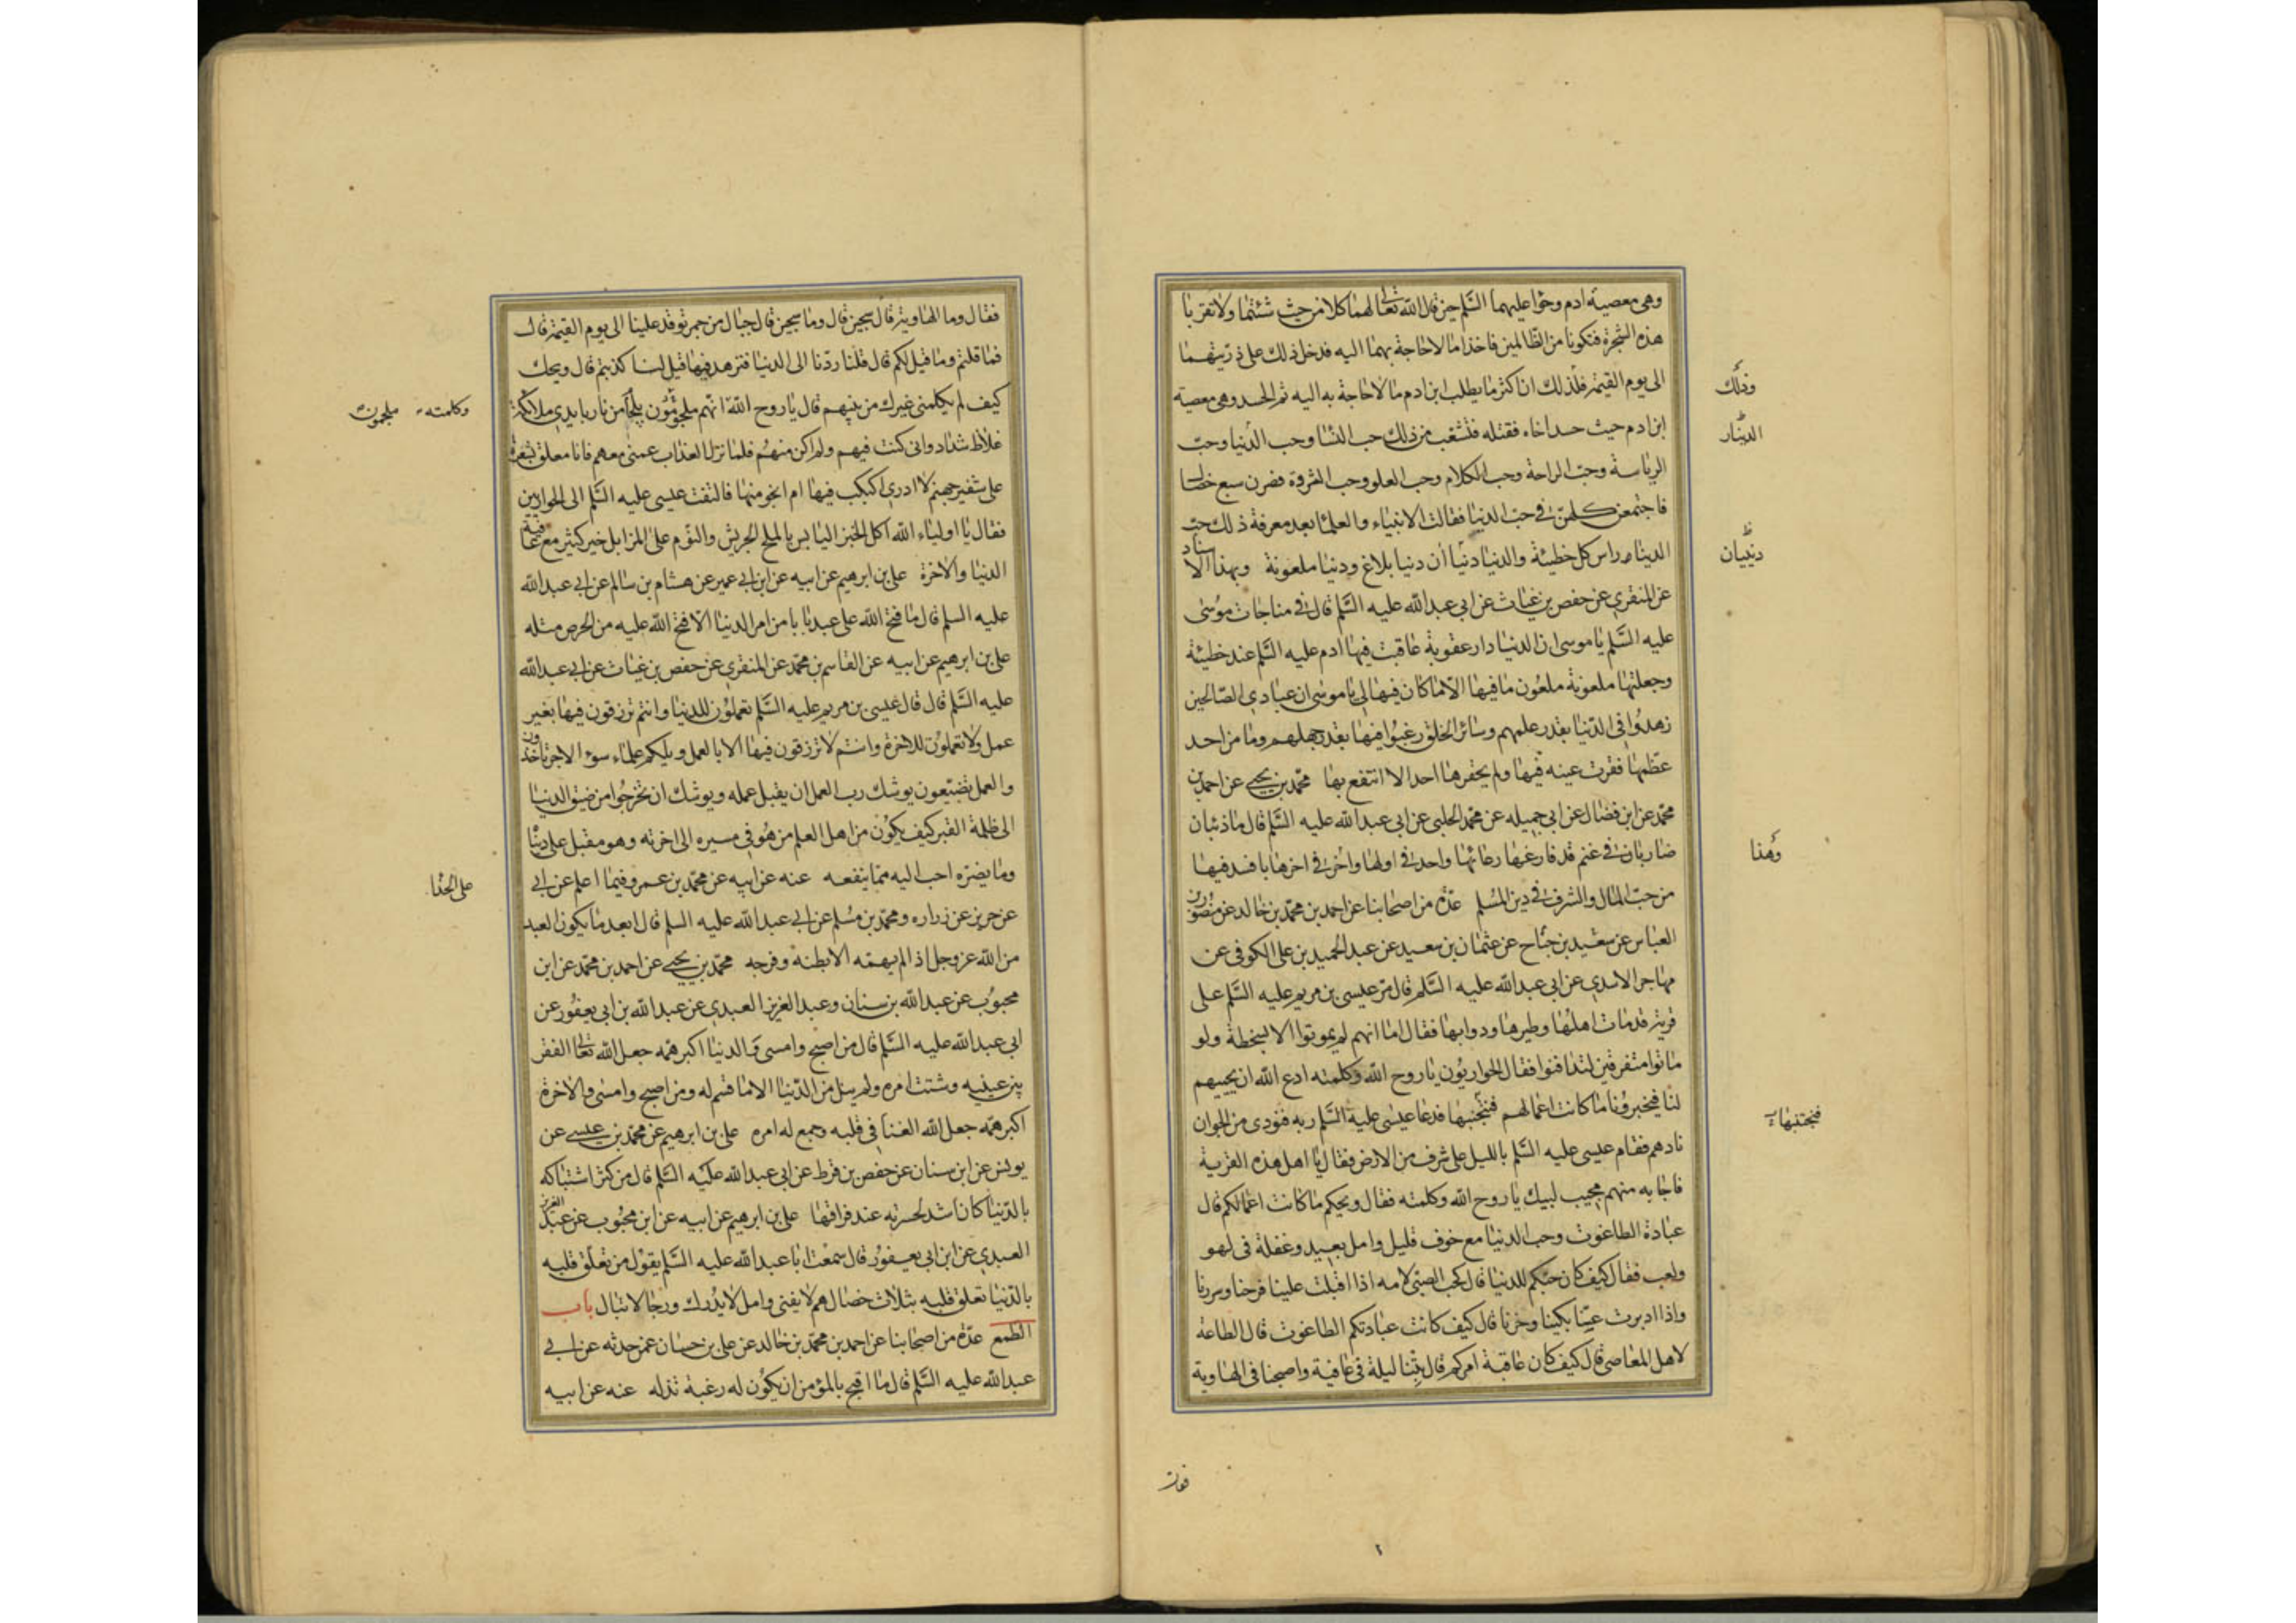 وهى معصية ادم وحوا عليهما السلم حين قال الله تعالى لهما كلا من حيث شئتما ولا تقربا
هذه الشجرة فتكونا من الظالمين فاخذا ما لا حاجة بهما اليه فدخل ذلك على ذريتهما
الى يوم القيمة فلذلك ان اكثر ما يطلب ابن ادم ما لا حاجة به اليه ثم الحسد وهى معصية
ابن ادم حيث حسد اخاه فقتله فتشعب من ذلك حب النسا وحب الدنيا وحب
الرياسة وحب الراحة وحب الكلام وحب العلو وحب الثروة فصرن سبع خصال
فاجتمعن كلهن فى حب الدنيا فقالت الانبياء والعلما بعد معرفة ذلك حب
الدنيا راس كل خطيئة والدنيا دنيا ان دنيا بلاغ ودنيا ملعونة وبهذا الاسناد
عن المنقرى عن حفص بن غياث عن ابى عبد الله عليه السلم قال فى مناجات موسى
عليه السلم يا موسى ان الدنيا دار عقوبة عاقبت فيها ادم عليه السلم عند خطيئة
وجعلتها ملعونة ملعون ما فيها الا ما كان فيها لى يا موسى ان عبادى الصالحين
زهدوا فى الدنيا بقدر علمهم وسائر الخلق رغبوا فيها بقدر جهلهم وما من احد
عظمها فقرت عينه فيها ولم يحقرها احد الا انتفع بها محمد بن يحيى عن احمد بن
محمد عن ابن فضال عن ابى جميله عن محمد الحلبى عن ابى عبد الله عليه السلم قال ما ذئبان
ضاريان فى غنم قد فارغها رعائها واحد فى اولها واخر فى اخرها بافسد فيها
من حب المال والشرف فى دين المسلم عدة من اصحابنا عن احمد بن محمد بن خالد عن منصور بن
العباس عن سعيد بن جناح عن عثمان بن سعيد عن عبد الحميد بن على الكوفى عن
مهاجر الاسدى عن ابى عبد الله عليه السلم قال مر عيسى بن مريم عليه السلم على
قرية قد مات اهلها وطيرها ودوابها فقال اما انهم لم يموتوا الا بسخطة ولو
ماتوا متفرقين لتدافنوا فقال الحواريون يا روح الله وكلمته ادع الله ان يحييهم
لنا فيخبرونا ما كانت اعمالهم فنجتنبها فدعا عيسى عليه السلم ربه فنودى من الجو ان
نادهم فقام عيسى عليه السلم بالليل على شرف من الارض فقال يا اهل هذه القرية
فاجابه منهم مجيب لبيك يا روح الله وكلمته فقال ويحكم ما كانت اعمالكم قال
عبادة الطاغوت وحب الدنيا مع خوف قليل وامل بعيد وغفلة فى لهو
ولعب فقال كيف كان حبكم للدنيا قال كحب الصبى لامه اذا اقبلت علينا فرحنا وسررنا
واذا ادبرت عنا بكينا وحزنا قال كيف كانت عبادتكم الطاغوت قال الطاعة
لاهل المعاصى قال كيف كان عاقبة امركم قال بتنا ليلة فى عافية واصبحنا فى الهاوية
وذلك
الدينار
دنييان
وهذا
فنجتنبها
فقال
فقال وما الهاوية قال سجين قال وما سجين قال جبال من جمر توقد علينا الى يوم القيمة قال
فما قلتم وما قيل لكم قال قلنا ردنا الى الدنيا فنزهد فيها قيل لنا كذبتم قال ويحك
كيف لم يكلمنى غيرك من بينهم قال يا روح الله انهم ملجمون بلجام من نار بايدى ملائكة
غلاظ شداد وانى كنت فيهم ولم اكن منهم فلما نزل العذاب عمنى معهم فانا معلق بشعرة
على شفير جهنم لا ادرى اكبكب فيها ام انجو منها فالتفت عيسى عليه السلم الى الحواريين
فقال يا اولياء الله اكل الخبز اليابس بالملح الجريش والنوم على المزابل خير كثير مع عافية
الدنيا والاخرة على بن ابرهيم عن ابيه عن ابن ابى عمير عن هشام بن سالم عن ابى عبد الله
عليه السلم قال ما فتح الله على عبد بابا من امر الدنيا الا فتح الله عليه من الحرص مثله
على بن ابرهيم عن ابيه عن القاسم بن محمد عن المنقرى عن حفص بن غياث عن ابى عبد الله
عليه السلم قال قال عيسى بن مريم عليه السلم تعملون للدنيا وانتم ترزقون فيها بغير
عمل ولا تعملون للاخرة وانتم لا ترزقون فيها الا بالعمل ويلكم علماء سوء الاجر تاخذون
والعمل تضيعون يوشك رب العمل ان يقبل عمله ويوشك ان تخرجوا من ضيق الدنيا
الى ظلمة القبر كيف يكون من اهل العلم من هو فى مسيره الى اخرته وهو مقبل على دنيا
وما يضره احب اليه مما ينفعه عنه عن ابيه عن محمد بن عمرو فيما اعلم عن ابى
عن حريز عن زراره ومحمد بن مسلم عن ابى عبد الله عليه السلم قال ابعد ما يكون العبد
من الله عز وجل اذا لم يهمه الا بطنه وفرجه محمد بن يحيى عن احمد بن محمد عن ابن
محبوب عن عبد الله بن سنان وعبد العزيز العبدى عن عبد الله بن ابى يعفور عن
ابى عبد الله عليه السلم قال من اصبح وامسى والدنيا اكبر همه جعل الله تعالى الفقر
بين عينيه وشتت امره ولم ينل من الدنيا الا ما قسم له ومن اصبح وامسى والاخرة
اكبر همه جعل الله الغنا فى قلبه وجمع له امره على بن ابرهيم عن محمد بن عيسى عن
يونس عن ابن سنان عن حفص بن قرط عن ابى عبد الله عليه السلم قال من كثر اشتباكه
بالدنيا كان اشد لحسرته عند فراقها على بن ابرهيم عن ابيه عن ابن محبوب عن عبد العزيز
العبدى عن ابن ابى يعفور قال سمعت ابا عبد الله عليه السلم يقول من تعلق قلبه
بالدنيا تعلق قلبه بثلاث خصال هم لا يفنى وامل لا يدرك ورجا لا تنال باب
الطمع عدة من اصحابنا عن احمد بن محمد بن خالد عن على بن حسان عمن حدثه عن ابى
عبد الله عليه السلم قال ما اقبح بالمؤمن ان يكون له رغبة تذله عنه عن ابيه
وكلمته ملجمون